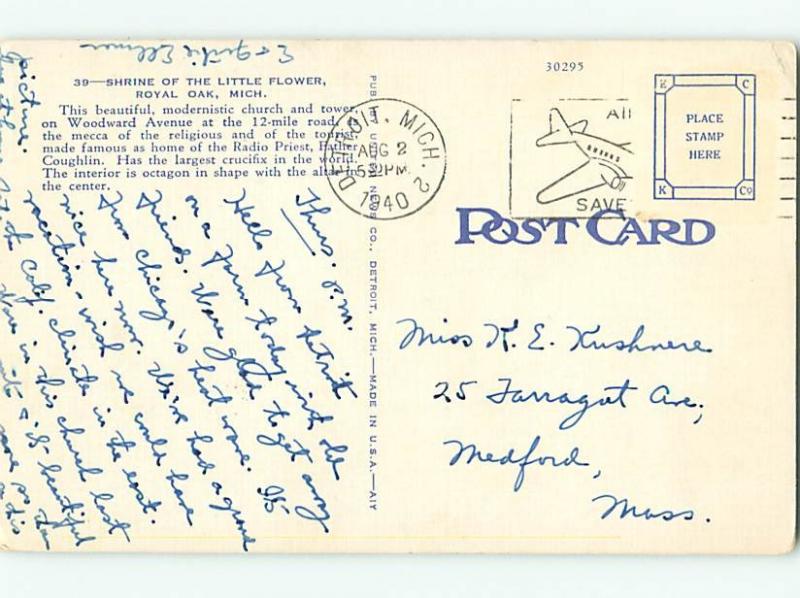 39—SHRINE OF THE LITTLE FLOWER,
ROYAL OAK, MICH.
This beautiful, modernistic church and tower,
on Woodward Avenue at the 12-mile road, is
the mecca of the religious and of the tourist,
made famous as home of the Radio Priest, Father
Coughlin. Has the largest crucifix in the world.
The interior is octagon in shape with the altar in
the center.
Thurs. P.M.
Hello from Detroit
on a farm today with old
friends. Were glad to get away
from Chicago's heat wave. It's
nice here now. We've had a good
vacation - wish we could have
the Calif. climate in the east.
Was in this church last
it is beautiful
picture.
PUB. BY UNITED NEWS CO., DETROIT, MICH.—MADE IN U.S.A.—AIY
DETROIT, MICH. 2
AUG 2
5 PM
1940
30295
AIR
SAVE
E C
PLACE
STAMP
HERE
K Co
POST CARD
Miss K. E. Kushnere
25 Farragut Ave.,
Medford,
Mass.